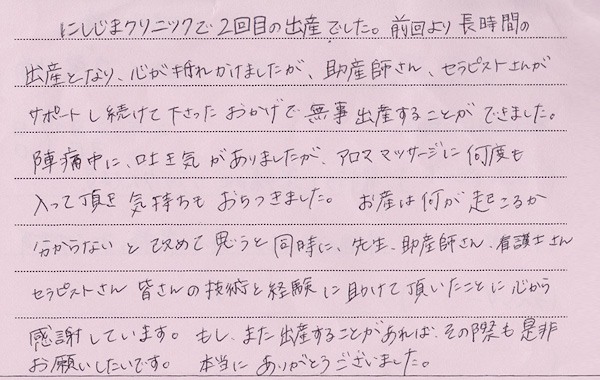 にしじまクリニックで2回目の出産でした。前回より長時間の
出産となり、心が折れかけましたが、助産師さん、セラピストさんが
サポートし続けて下さったおかげで無事出産することができました。
陣痛中に、吐き気がありましたが、アロママッサージに何度も
入って頂き気持ちもおちつきました。 お産は何が起こるか
分からないと改めて思うと同時に、先生、助産師さん、看護士さん
セラピストさん 皆さんの技術と経験に助けて頂いたことに心から
感謝しています。もし、また出産することがあれば、その際も是非
お願いしたいです。 本当にありがとうございました。